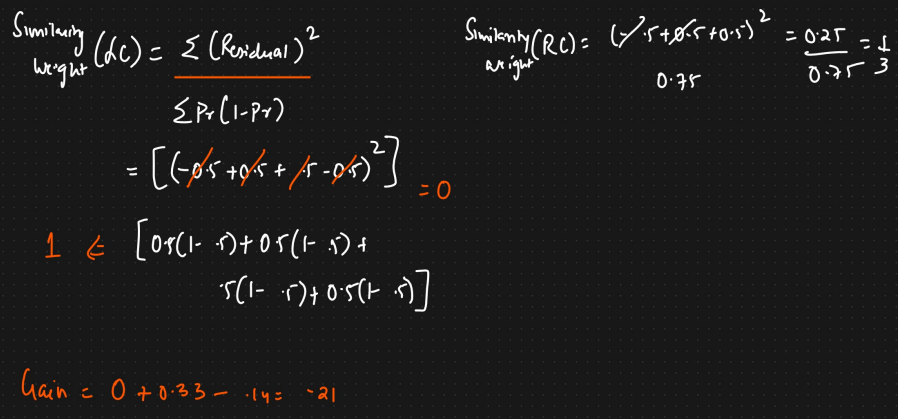 Similarity Weight (LC) = Σ (Residual)²
Σ Pr (1-Pr)
= [(-0.5 + 0.5 + .5 - 0.5)²] = 0
1 ← [0.5(1- .5) + 0.5(1- .5) +
.5(1- .5) + 0.5(1- .5)]
Similarity weight (RC) = (-.5+0.5+0.5)² = 0.25 = 1
0.75 0.75 3
Gain = 0 + 0.33 - .14 = .21